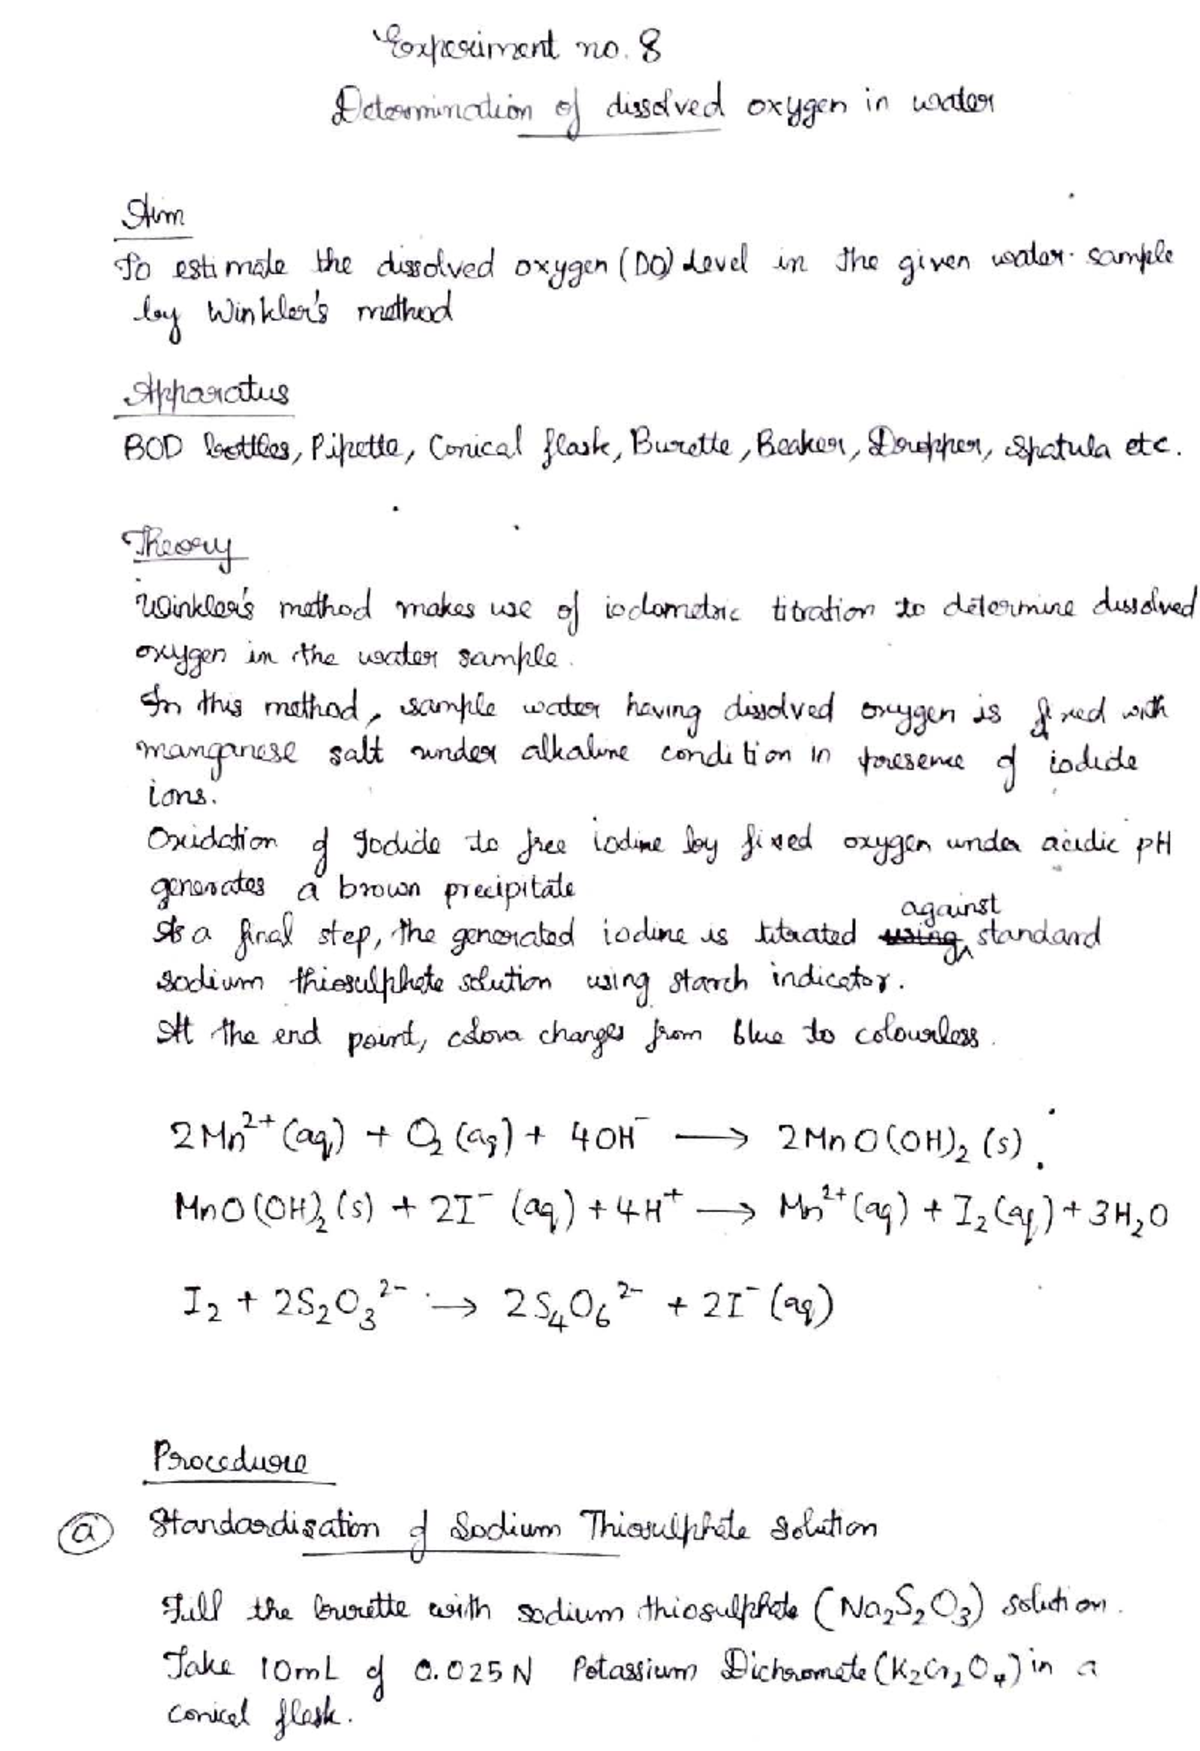 Experiment no. 8
Determination of dissolved oxygen in water
Aim
To estimate the dissolved oxygen (DO) level in the given water sample
by Winkler's method
Apparatus
BOD bottles, Pipette, Conical flask, Burette, Beaker, Dropper, Spatula etc.
Theory
Winkler's method makes use of iodometric titration to determine dissolved
oxygen in the water sample.
In this method, sample water having dissolved oxygen is fixed with
manganese salt under alkaline condition in presence of iodide
ions.
Oxidation of Iodide to free iodine by fixed oxygen under acidic pH
generates a brown precipitate
As a final step, the generated iodine is titrated against standard
sodium thiosulphate solution using starch indicator.
At the end point, colour changes from blue to colourless.
2Mn²⁺(aq) + O₂(aq) + 4OH⁻ ⟶ 2MnO(OH)₂(s).
MnO(OH)₂(s) + 2I⁻(aq) + 4H⁺ ⟶ Mn²⁺(aq) + I₂(aq) + 3H₂O
I₂ + 2S₂O₃²⁻ ⟶ 2S₄O₆²⁻ + 2I⁻(aq)
Procedure
(a) Standardisation of Sodium Thiosulphate solution
Fill the burette with sodium thiosulphate (Na₂S₂O₃) solution.
Take 10mL of 0.025N Potassium Dichromate (K₂Cr₂O₇) in a
conical flask.